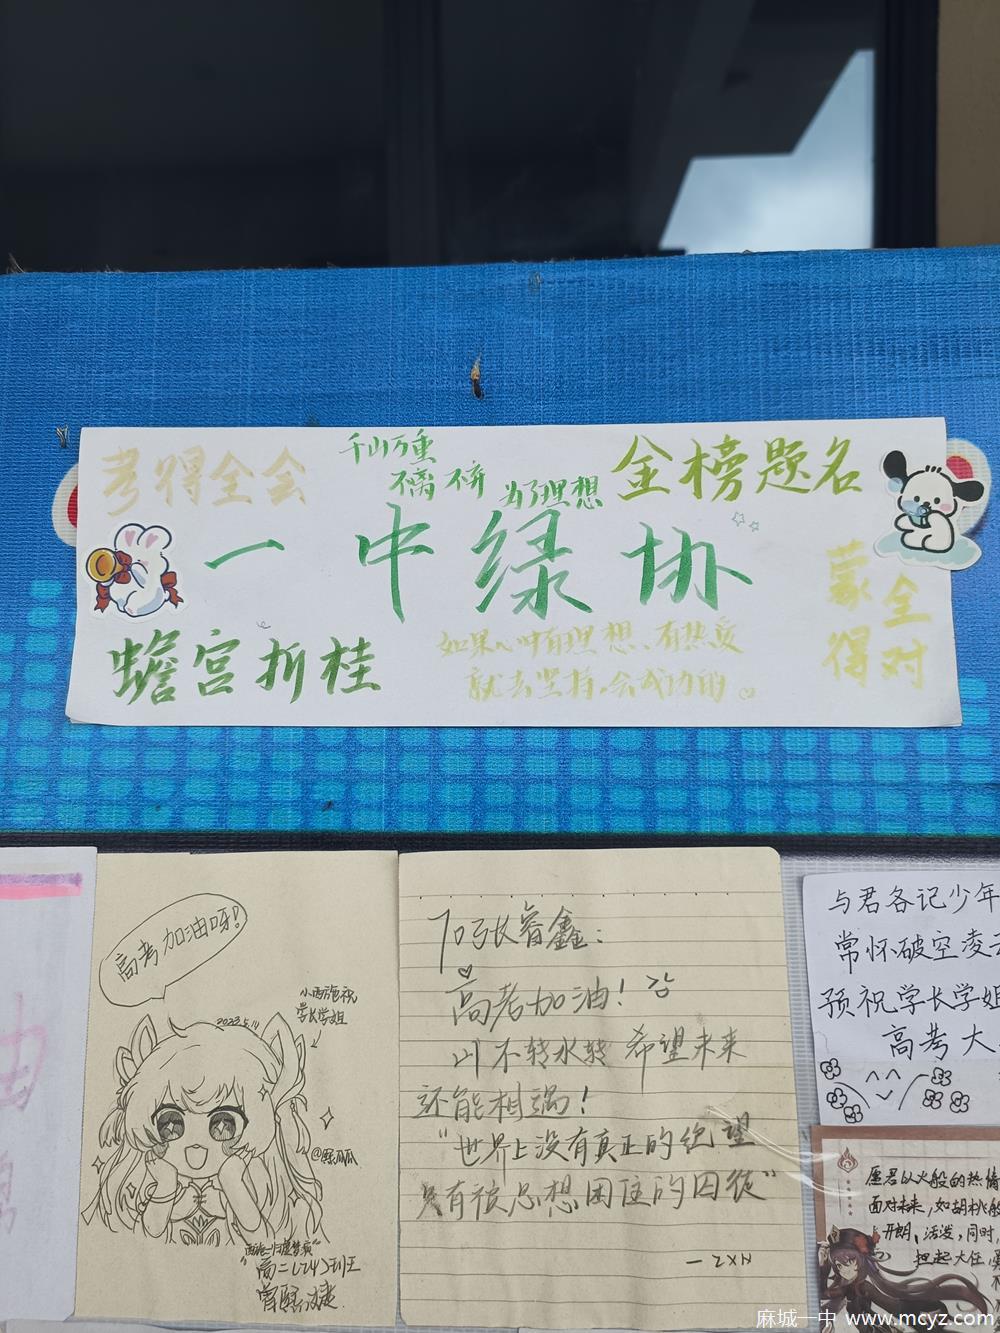 考得全会
千山万重
不离不弃
为了理想
金榜题名
一中绿协
蒙全
得对
蟾宫折桂
如果心中有理想、有热爱
就去坚持,会成功的
高考加油呀!
小西施祝
学长学姐
2023.5.14
高二(24)班
To张睿鑫:
高考加油!
山不转水转 希望未来
还能相遇!
"世界上没有真正的绝望
只有被思想困住的囚徒"
—ZXN
与君各记少年
常怀破空凌云
预祝学长学姐
高考大
愿君以火般的热情
面对未来,如胡桃般
开朗、活泼,同时,
担起大任
麻城一中 www.mcyz.com